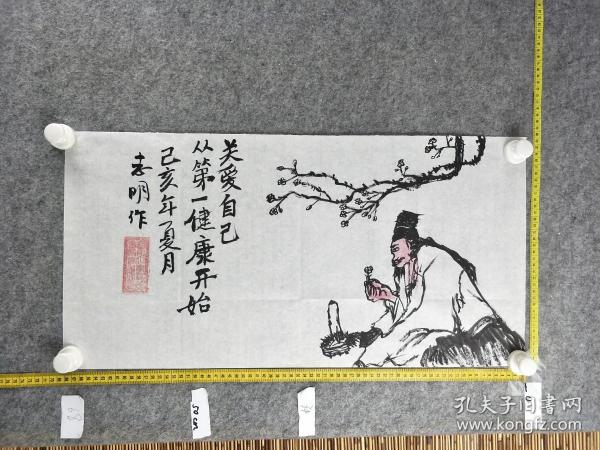 关爱自己
从第一健康开始
己亥年夏月
志明作
50cm
孔夫子旧书网